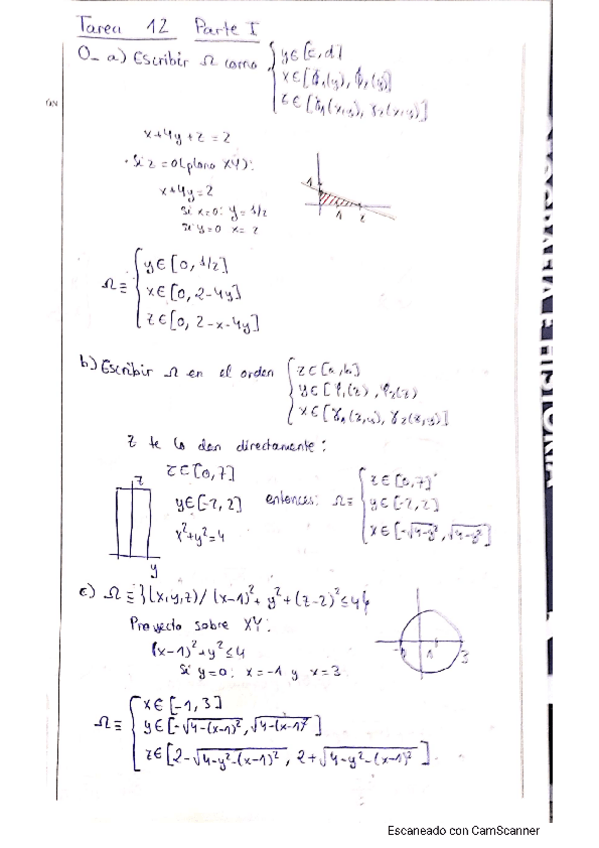 Tarea 12 Parte I
0_ a) Escribir Ω como { y∈[c,d]
x∈[ϕ₁(y), ϕ₂(y)]
z∈[γ₁(x,y), γ₂(x,y)]
x+4y+z=2
· Si z=0 (plano XY):
x+4y=2
Si x=0: y=1/2
si y=0 x=2
1
1 2
Ω≡ { y∈[0, 1/2]
x∈[0, 2-4y]
z∈[0, 2-x-4y]
b) Escribir Ω en el orden { z∈[a,b]
y∈[φ₁(z), φ₂(z)
x∈[γ₁(z,y), γ₂(z,y)]
z te lo dan directamente:
z∈[0,7]
y∈[-2,2]
x²+y²=4
z
y
entonces: Ω≡ { z∈[0,7]
y∈[-2,2]
x∈[-√4-y², √4-y²]
c) Ω≡{(x,y,z)/(x-1)²+y²+(z-2)²≤4}
Proyecto sobre XY:
(x-1)²+y²≤4
Si y=0: x=-1 y x=3
1 3
Ω≡ { x∈[-1,3]
y∈[-√4-(x-1)², √4-(x-1)²]
z∈[2-√4-y²-(x-1)², 2+√4-y²-(x-1)²].
Escaneado con CamScanner